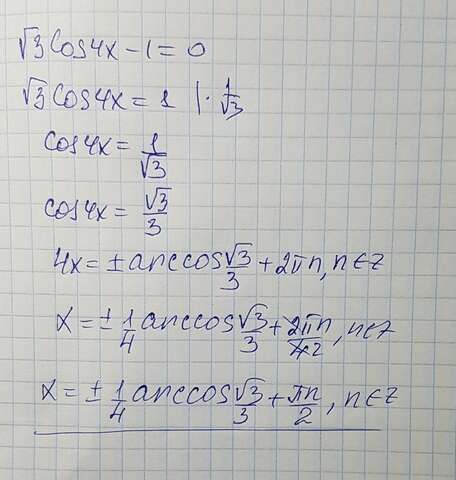 √3 cos4x - 1 = 0
√3 cos4x = 1 | · 1/√3
cos4x = 1/√3
cos4x = √3/3
4x = ± arccos √3/3 + 2πn, n∈z
x = ± 1/4 arccos √3/3 + 2πn/4 2, n∈z
x = ± 1/4 arccos √3/3 + πn/2, n∈z